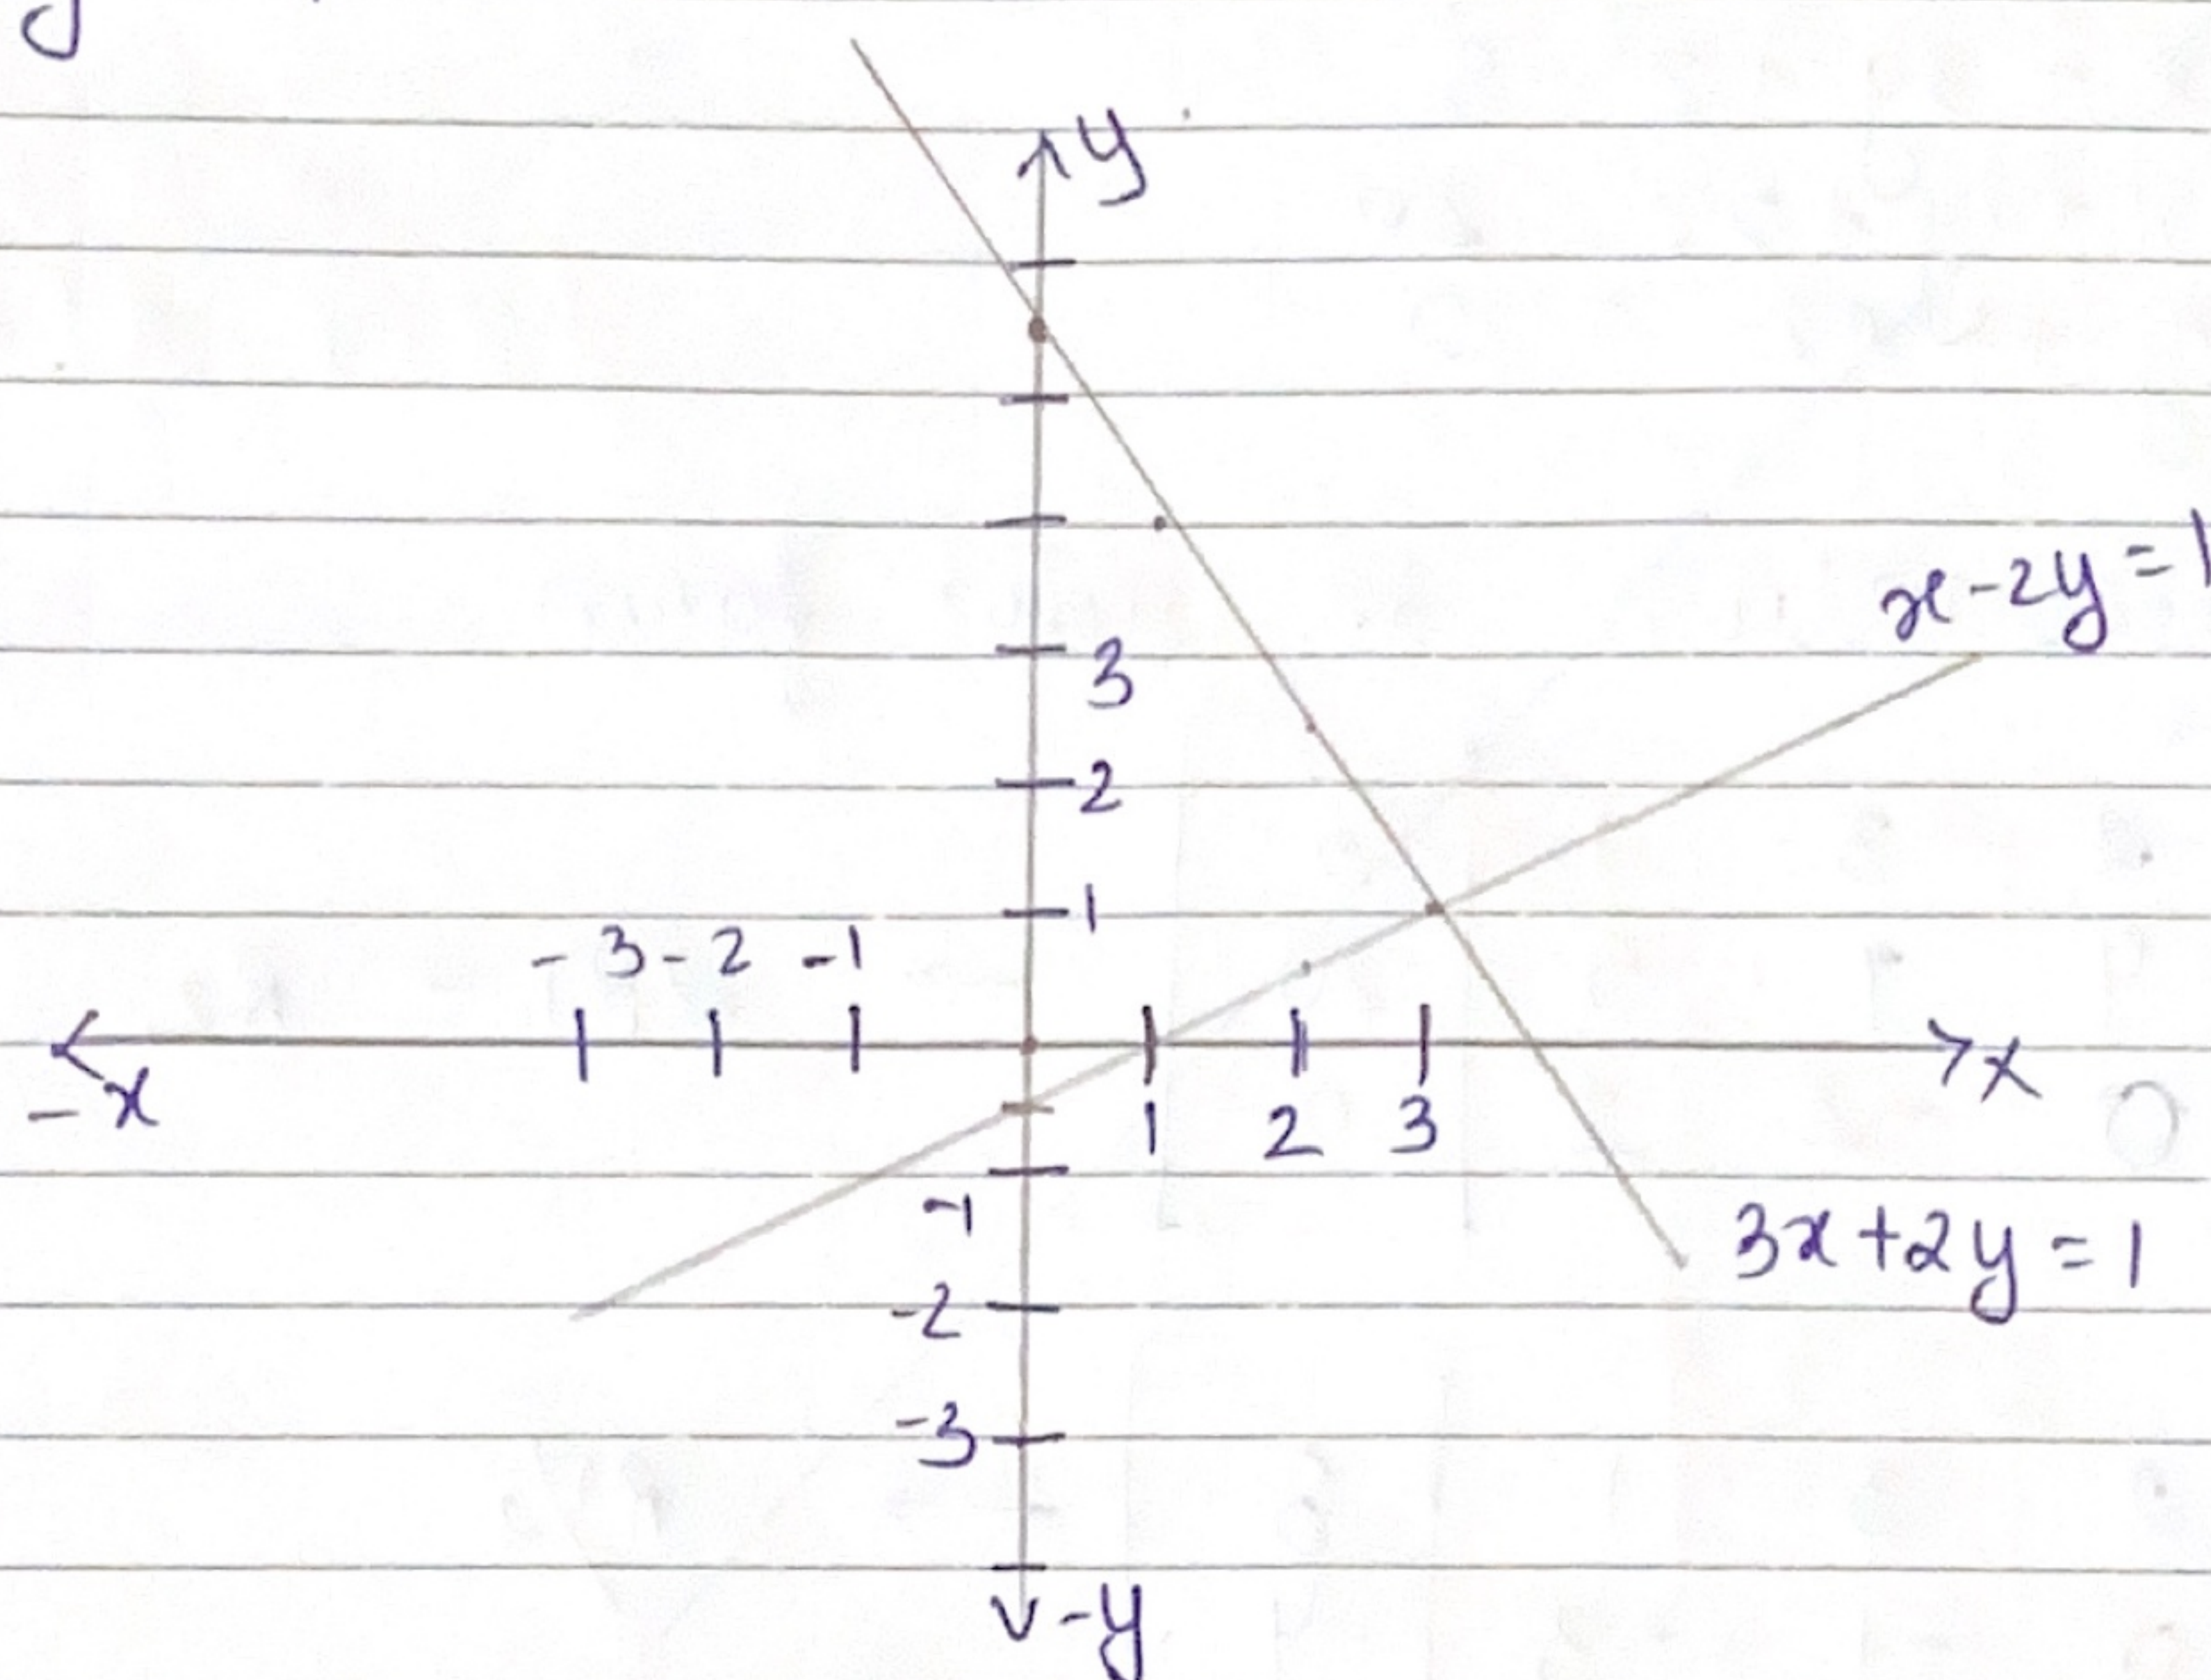 y
x-2y=1
3
2
1
-3 -2 -1
-x
x
1 2 3
-1
3x+2y=1
-2
-3
-y